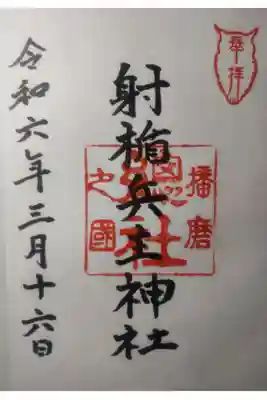 奉拝
射楯兵主神社
播磨
之國
総社
令和六年三月十六日